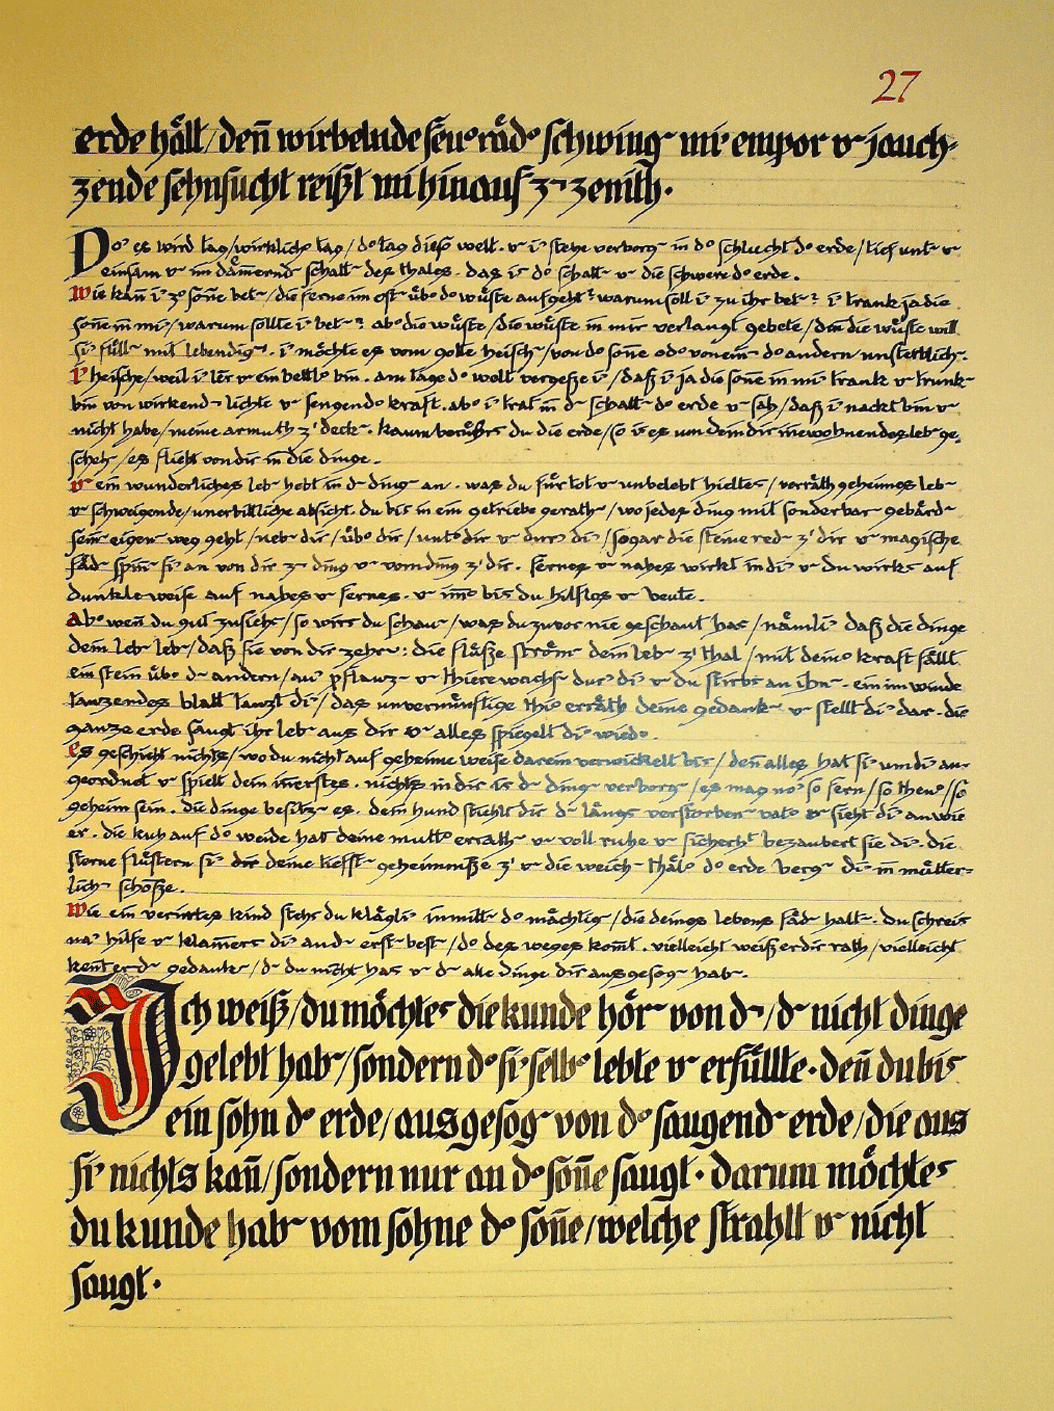 27
erde hält/deñ wirbelnde feu°räd° schwing‾ mi' empor v‾ jauch-
zende sehnsucht reißt mi hinauf z‾ zenith.
Do' es wird tag/wirklich° tag/d° tag dies° welt. v‾ i' stehe verborg‾ in d° schlucht d° erde/tief unt‾ v‾
einsam v‾ im däm̄ernd‾ schatt‾ des thales. das is d° schatt‾ v‾ die schwere d° erde.
Wie kañ i' z° soñe bet‾/die ferne im ost‾ üb° d° wüste aufgeht? warum soll i' zu ihr bet‾? i' trank ja die
soñe iñ mi'/warum sollte i' bet‾? ab° die wüste/die wüste in mir verlangt gebete/deñ die wüste will
si' füll‾ mit lebendig‾. i' möchte es vom gotte heisch‾/von d° soñe od° von ein‾ d° andern unsterblich‾.
i' heische/weil i' leer v‾ ein bettl° bin. am tage d° welt vergeße i'/daß i' ja die soñe in mi' trank v‾ trunk‾
bin von wirkend‾ lichte v‾ sengend° kraft. ab° i' trat iñ d‾ schatt‾ d° erde v‾ sah/daß i' nackt bin v‾
nicht habe/meine armuth z' deck‾. kaum berührs du die erde/so is es um dein dir iñewohnendes leb‾ ge-
scheh‾/es flieht von dir in die dinge.
v‾ ein wunderliches leb‾ hebt in d‾ ding‾ an. was du für tot v‾ unbelebt hieltes/verräth geheimes leb‾
v‾ schweigende/unerbittliche absicht. du bis in ein getriebe gerath‾/wo jedes ding mit sonderbar‾ gebärd‾
sein‾ eigen‾ weg geht/neb‾ dir/üb° dir/unt° dir v‾ dur' di'/sogar die steine red‾ z' dir v‾ magische
fäd‾ spiñ‾ si' an von dir z‾ ding v‾ vom ding z' dir. fernes v‾ nahes wirkt in di' v‾ du wirks auf
dunkle weise auf nahes v‾ fernes. v‾ im̄° bis du hilflos v‾ beute.
ab° weñ du gut zusiehs/so wirs du schau‾/was du zuvor nie geschaut has/nämli' daß die dinge
dein leb‾ leb‾/daß sie von dir zehr‾: die flüße ström‾ dein leb‾ z' thal/mit dein° kraft fällt
ein stein üb° d‾ andern/au' pflanz‾ v‾ thiere wachs‾ dur' di' v‾ du stirbs an ihn‾. ein im winde
tanzendes blatt tanzt di'/das unvernünftige thi° erräth deine gedank‾ v‾ stellt di' dar. die
ganze erde saugt ihr leb‾ aus dir v‾ alles spiegelt di' wied°.
es geschieht nichts/wo du nicht auf geheime weise darein verwickelt bis/deñ alles hat si' um di' an-
geordnet v‾ spielt dein iñerstes. nichts in dir is d‾ ding‾ verborg‾/es mag no' so fern/so theu°/so
geheim sein. die dinge besitz‾ es. dein hund stiehlt dir d‾ längs verstorben‾ vat° v‾ sieht di' an wie
er. die kuh auf d° weide hat deine mutt° errath‾ v‾ voll ruhe v‾ sicherht bezaubert sie di'. die
sterne flüstern si' dir deine tiefst‾ geheimniße z' v‾ die weich‾ thäl° d° erde berg‾ di' iñ mütter-
lich‾ schoße.
Wie ein verirrtes kind stehs du klägli' inmitt‾ d° mächtig‾/die deines lebens fäd‾ halt‾. du schreis
na' hilfe v‾ klam̄ers di' an d‾ erst‾ best‾/d° des weges kom̄t. vielleicht weiß er dir rath/vielleicht
keñt er d‾ gedank‾/d‾ du nicht has v‾ d‾ alle dinge dir ausgesog‾ hab‾.
Ich weiß/du möchtes die kunde hör‾ von d‾/d‾ nicht dinge
gelebt hab‾/sondern d° si' selb° lebte v‾ erfüllte. deñ du bis
ein sohn d° erde/ausgesog‾ von d° saugend‾ erde/die aus
si' nichts kañ/sondern nur an d° soñe saugt. darum möchtes
du kunde hab‾ vom sohne d° soñe/welche strahlt v‾ nicht
saugt.